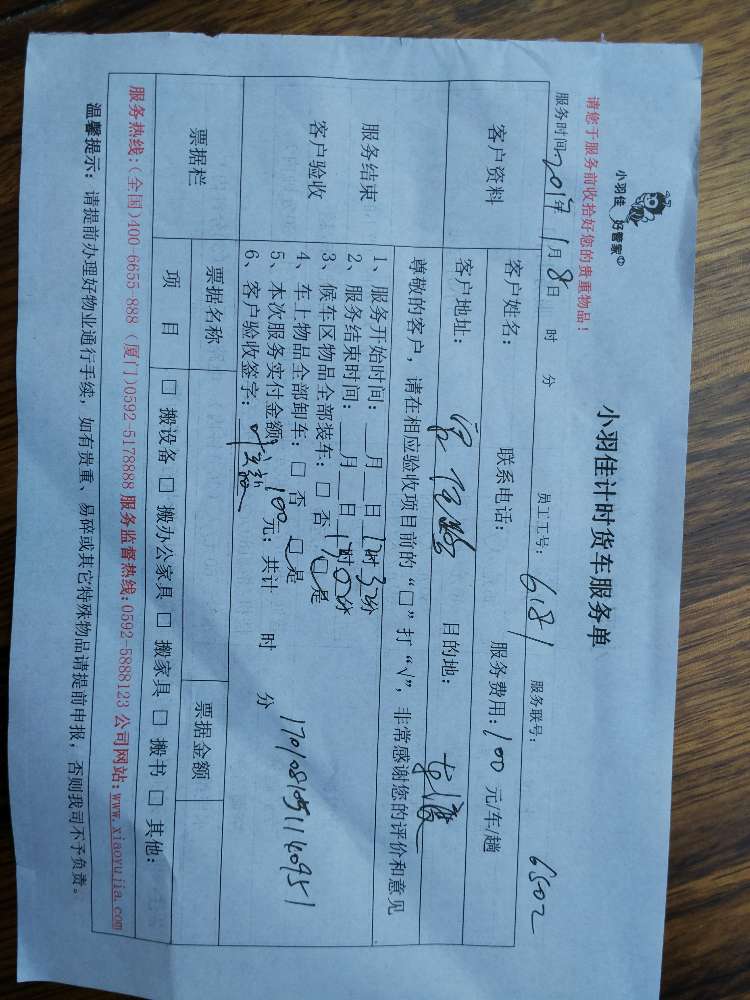 小羽佳 好管家
小羽佳计时货车服务单
请您于服务前收拾好您的贵重物品！
服务时间: 2017年 1月 8日 时 分 员工工号: 6181 服务联号: 6502
客户资料
客户姓名: 联系电话: 服务费用: 100 元/车/趟
客户地址: 目的地:
服务结束
客户验收
尊敬的客户，请在相应验收项目前的“□”打“√”，非常感谢您的评价和意见
1、服务开始时间: __月__日 时32分
2、服务结束时间: __月__日 17时02分
3、候车区物品全部装车: □ 否 □ 是
4、车上物品全部卸车: □ 否 □ 是
5、本次服务实付金额 100 元; 共计 时 分
6、客户验收签字:
票据栏
票据名称 票据金额
项 目 □ 搬设备 □ 搬办公家具 □ 搬家具 □ 搬书 □ 其他:
服务热线:(全国)400-6655-888 (厦门)0592-5178888 服务监督热线:0592-5888123 公司网站:www.xiaoyujia.com
温馨提示: 请提前办理好物业通行手续，如有贵重、易碎或其它特殊物品请提前申报，否则我司不予负责。